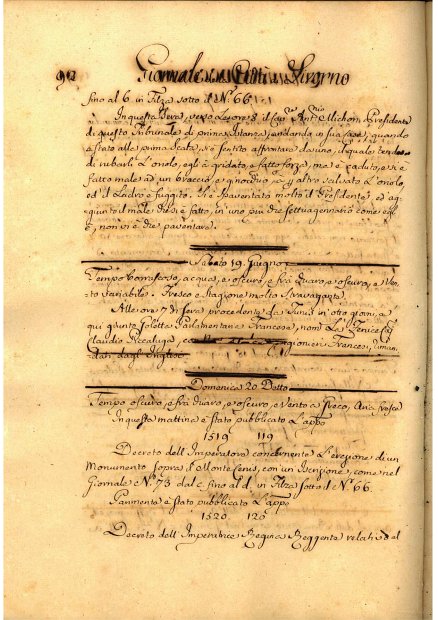 Giornale di Livorno
fino al 6. in Filza sotto il N.° 66.
In questa sera, verso le ore Presidente
di questo Tribunale di prima istanza, andando in sua casa, quando
è stato alle prima scala, si è sentito affrontare da uno, il quale
di rubarli l'oriolo, egli à gridato, e fatto forza, ma è caduto, e si è
fatto male ad un braccio, e ginocchio altro salvato l'oriolo,
ed il Ladro è fuggito. Si è spaventato molto il Presidente, ed ag-
giunto il male che si è fatto, in uno più che settuagenario come egli
è, non vi è che paventare.
Sabato 19. Giugno
Tempo burrascoso, acqua, e oscuro, e frà chiaro, e oscuro, e Ven-
to variabile. Fresco e Stagione molto Stravagante.
Alle ore 7 di Sera procedente da Tunis in otto giorni, è
qui giunto Goletta Parlamentaria Francese, nom.a La Fenice
Claudio Francesi, riman-
dati dagl'Inglesi.
Domenica 20. Detto
Tempo oscuro, e frà chiaro, e oscuro, e Vento a fresco, Aria fresca
In questa mattina è stato pubblicato
1519 119
Decreto dell'Imperatore concernente l'erezione di un
Monumento sopra il Monte Cenis, con un Iscrizione, come nel
Giornale N.° 73. dal c. fino al d. in Filza sotto il N.° 66.
Parimente è stato pubblicato
1520 120
Decreto dell'Imperatrice Regina Reggente relativo al